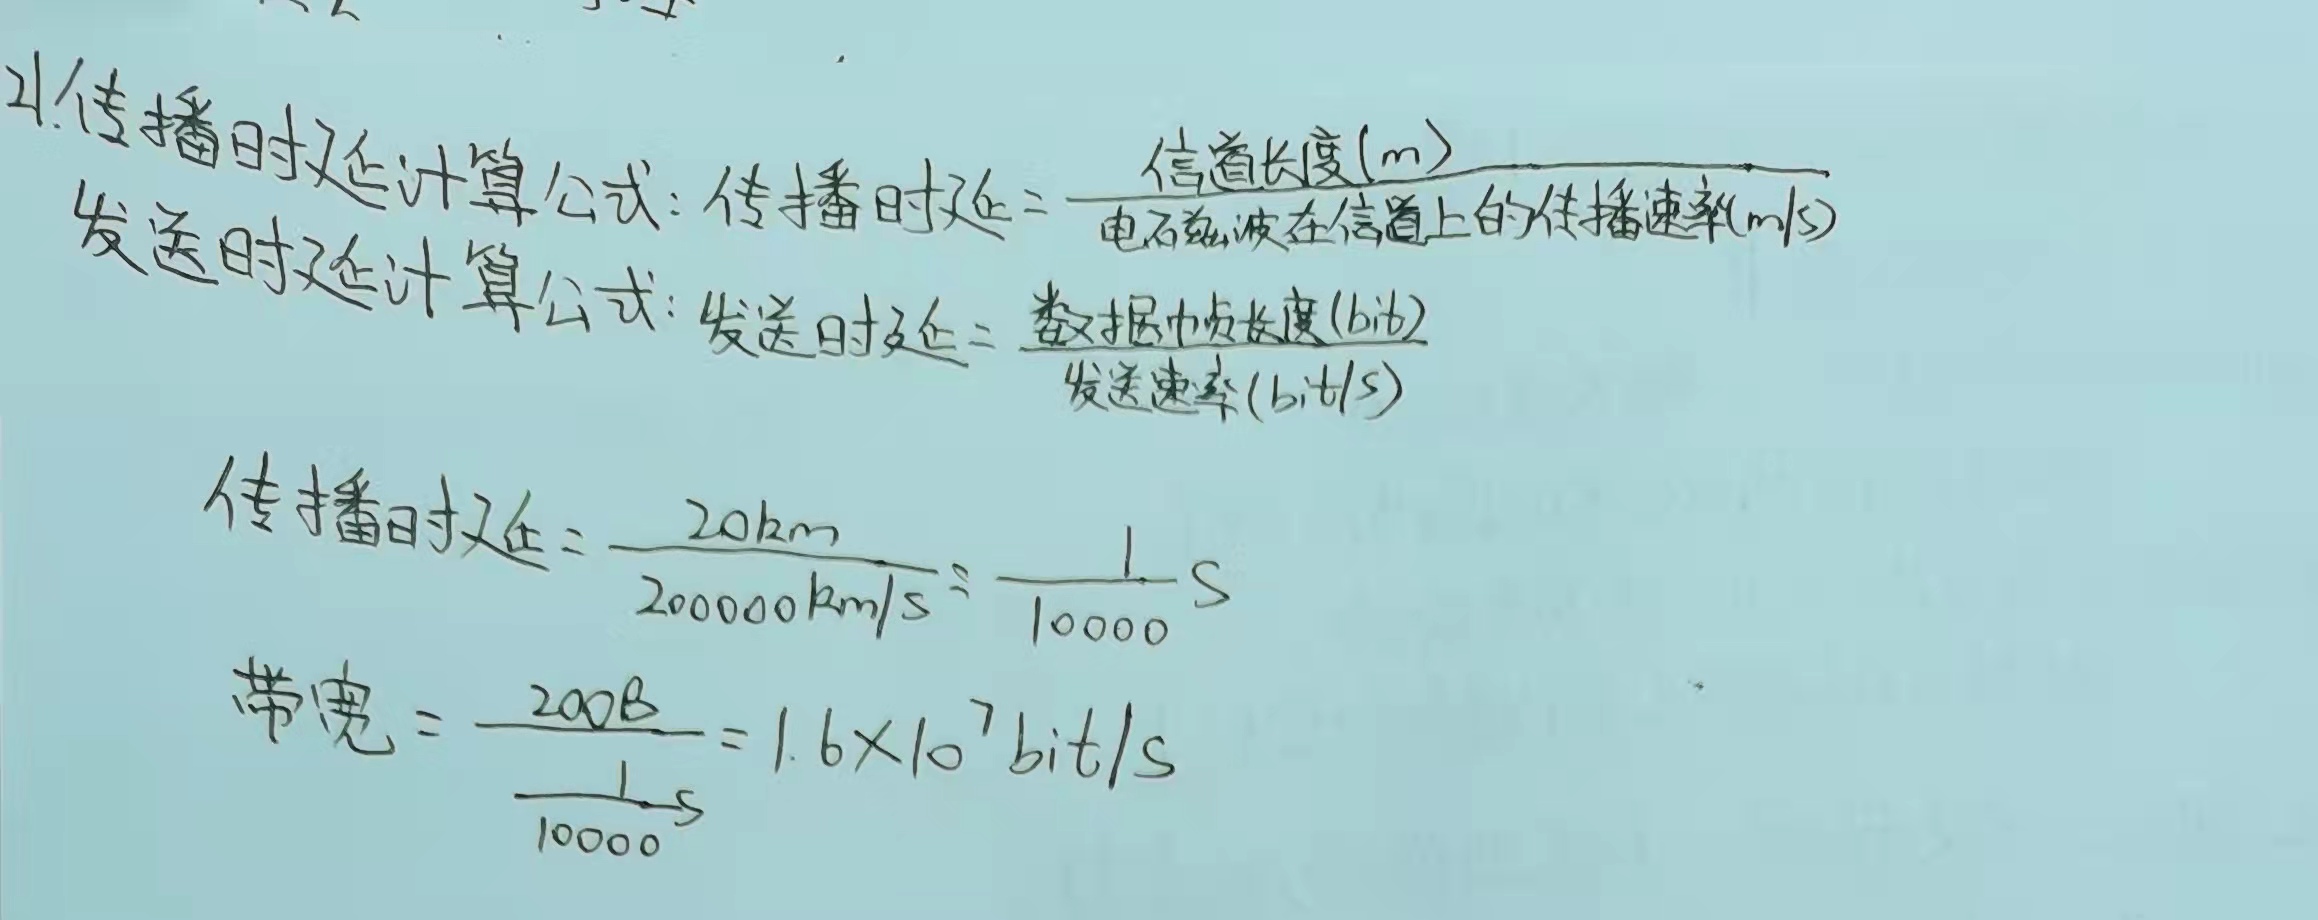 21.传播时延计算公式：传播时延 = 信道长度(m) / 电磁波在信道上的传播速率(m/s)
发送时延计算公式：发送时延 = 数据帧长度(bit) / 发送速率(bit/s)
传播时延 = 20km / 200000km/s = 1 / 10000 s
带宽 = 200B / (1 / 10000 s) = 1.6×10⁷bit/s